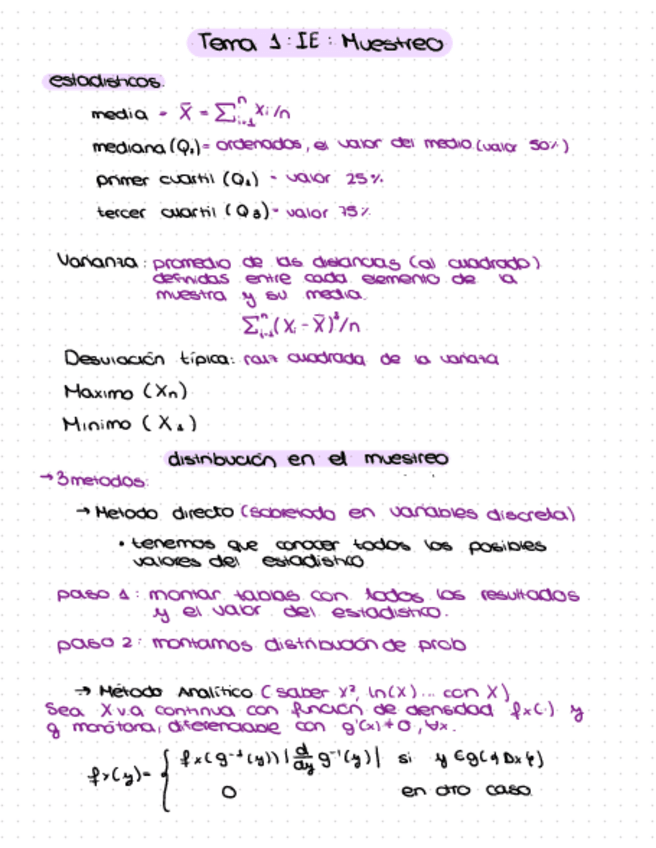 Tema 1: IE: Muestreo
estadisticos:
media - X̄ = ∑ⁿᵢ₌₁ Xi/n
mediana (Q₁) = ordenados, el valor del medio (valor 50%)
primer cuartil (Q₁) - valor 25%
tercer cuartil (Q₃) - valor 75%
Varianza: promedio de las distancias (al cuadrado)
definidas entre cada elemento de la
muestra y su media.
∑ⁿᵢ₌₁(Xᵢ - X̄)²/n
Desviación típica: raiz cuadrada de la variaza
Maximo (Xn)
Minimo (X₁)
distribución en el muestreo
→ 3 metodos:
→ Metodo directo (sobretodo en variables discreta)
• tenemos que conocer todos los posibles
valores del estadistico
paso 1: montar tablas con todos los resultados
y el valor del estadistico.
paso 2: montamos distribución de prob
→ Método Analítico (saber X², ln(X)... con X)
Sea X v.a continua con función de densidad fx(·) y
g monótona, diferenciable con g'(x) ≠ 0, ∀x.
fY(y) = { fx(g⁻¹(y)) |d/dy g⁻¹(y)| si y ∈ g({Dx})
0 en otro caso